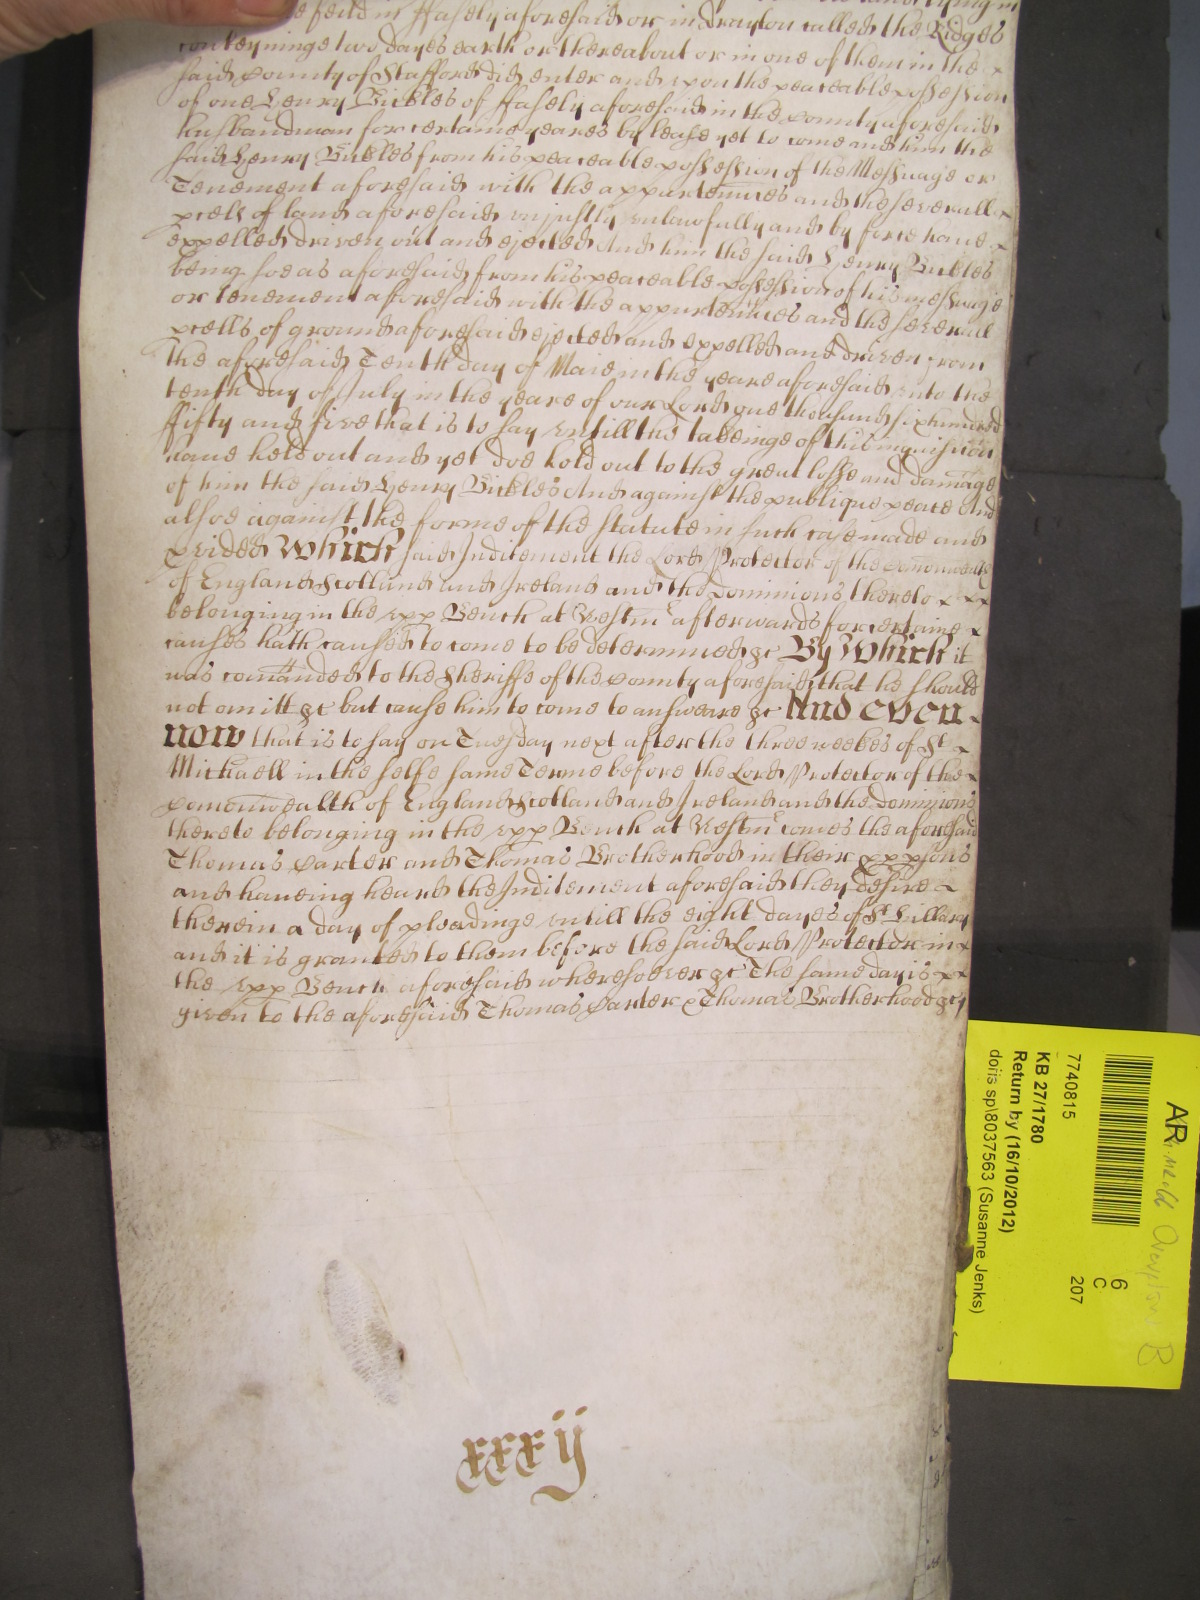 lying in
feild in ffasely aforesaid or in drayton called the Ridges
conteyninge two dayes earth or thereabout or in one of them in the x
said County of Stafford did enter and upon the peaceable possession
of one Henry Bickles of ffasely aforesaid in the County aforesaid
husbandman for certaine yeares by lease yet to come and him the
said Henry Bickles from his peaceable possession of the Messuage or
Tenement aforesaid with the appurtenñces and the severall x
pcells of land aforesaid unjustly unlawfully and by force haue x
expelled driven out and ejected And him the said Henry Bickles
being soe as aforesaid from his peaceable possession of his messuage
or tenement aforesaid with the appurtenñces and the severall
pcells of ground aforesaid ejected and expelled and driven from
the aforesaid Tenth day of Maie in the yeare aforesaid unto the
tenth day of July in the yeare of our Lord one thousand six hundred
ffifty and five that is to say untill the takeinge of this inquisicõn
haue held out and yet doe hold out to the great losse and damage
of him the said Henry Bickles And against the publique peace And
alsoe against the forme of the statute in such case made and
pvided Which said Inditement the Lord Protector of the Comonwealth
of England Scotland and Ireland and the dominions thereto x x x
belonging in the upp Bench at Westm afterwards for certaine x
causes hath caused to come to be determined &c By Which it
was comanded to the Sheriffe of the County aforesaid that he should
not omitt &c but cause him to come to answeare &c And even
now that is to say on Tuesday next after the three weekes of St
Michaell in the selfe same Terme before the Lord Protector of the
Comonwealth of England Scotland and Ireland and the dominions
thereto belonging in the upp Bench at Westm comes the aforesaid
Thomas Carter and Thomas Brotherhood in their ppp psons
and haueing heard the Inditement aforesaid they desire
therein a day of pleadinge untill the eight dayes of St Hillary
and it is granted to them before the said Lord Protector in x
the upp Bench aforesaid wheresoever &c The same day is x x
given to the aforesaid Thomas Carter & Thomas Brotherhood &c
xxxij
AR
6
C
207
7740815
KB 27/1780
Return by (16/10/2012)
doris sp\8037563 (Susanne Jenks)